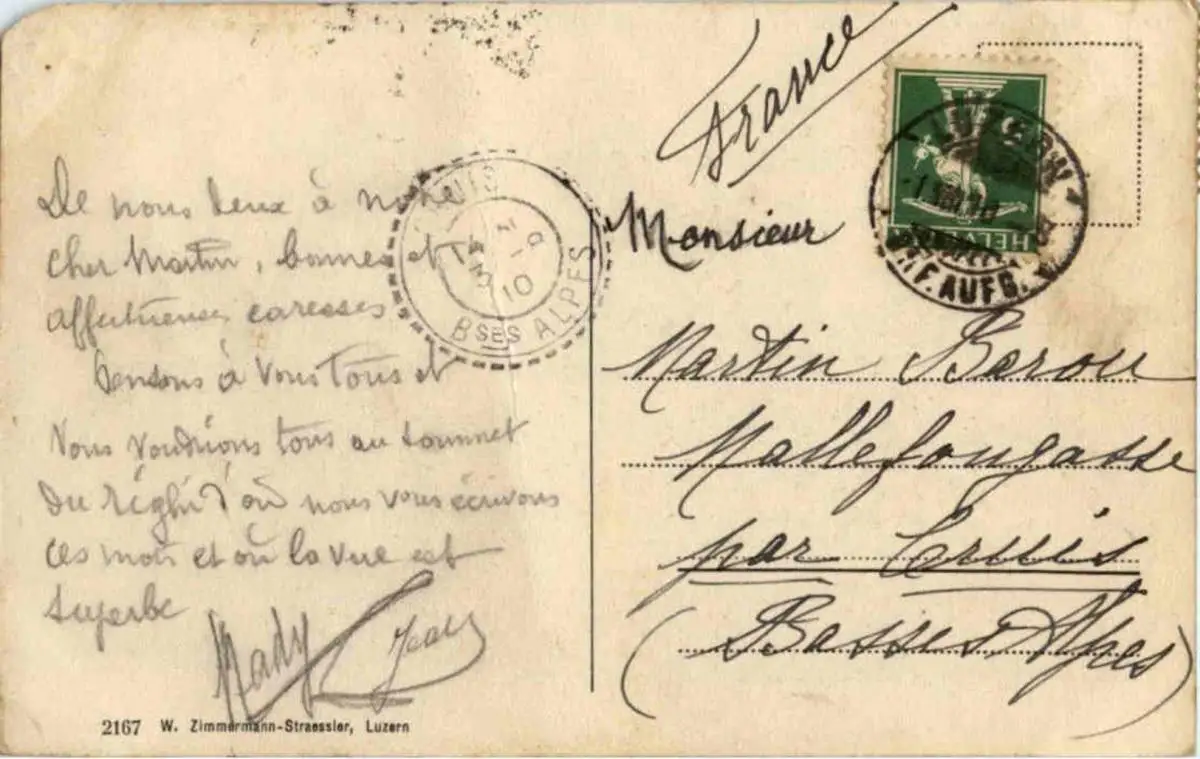 France
De nous deux à notre
cher Martin, bonnes et
affectueuses caresses
Pensons à vous tous et
vous voudrions tous au sommet
du Righi d'où nous vous écrivons
ces mots et où la vue est
superbe
Mady Jean
2167 W. Zimmermann-Straessler, Luzern
CRUIS
10
BSES ALPES
HELVETIA
LUZERN
BRF. AUFG.
Monsieur
Martin Barou
Mallefougasse
par Cruis
(Basses Alpes)